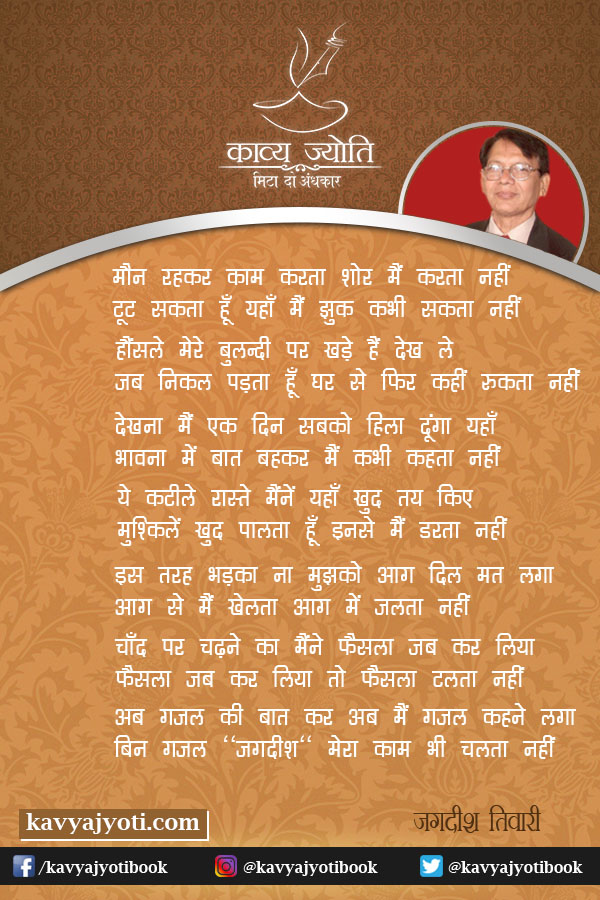 काव्य ज्योति
मिटा दो अंधकार
मौन रहकर काम करता शोर मैं करता नहीं
टूट सकता हूँ यहाँ मैं झुक कभी सकता नहीं
हौंसले मेरे बुलन्दी पर खड़े हैं देख ले
जब निकल पड़ता हूँ घर से फिर कहीं रुकता नहीं
देखना मैं एक दिन सबको हिला दूंगा यहाँ
भावना में बात बहकर मैं कभी कहता नहीं
ये कटीले रास्ते मैंनें यहाँ खुद तय किए
मुश्किलें खुद पालता हूँ इनसे मैं डरता नहीं
इस तरह भड़का ना मुझको आग दिल मत लगा
आग से मैं खेलता आग में जलता नहीं
चाँद पर चढ़ने का मैंने फैसला जब कर लिया
फैसला जब कर लिया तो फैसला टलता नहीं
अब गजल की बात कर अब मैं गजल कहने लगा
बिन गजल “जगदीश“ मेरा काम भी चलता नहीं
जगदीश तिवारी
kavyajyoti.com
/kavyajyotibook @kavyajyotibook @kavyajyotibook